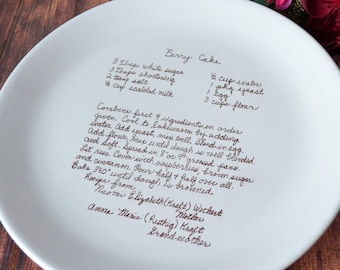 Berry Cake
3 tbsp white sugar
3 tbsps shortening
2 tsp salt
½ cup scalded milk
½ cup water
1 pkg yeast
1 egg
3 cups flour
Combine first 4 ingredients in order
given. Cool to lukewarm by adding
water. Add yeast, mix well. Blend in egg.
Add flour, mix until dough is well blended
and soft. Spread in 8 or 9" greased pans.
Let rise. Cover with raspberries, brown sugar
and cinnamon. Pour half & half over all.
Bake 350° until dough is browned.
Recipe from
Naomi Elizabeth (Kraft) Weckert
Mother
Anna Marie (Ruthig) Kraft
Grandmother